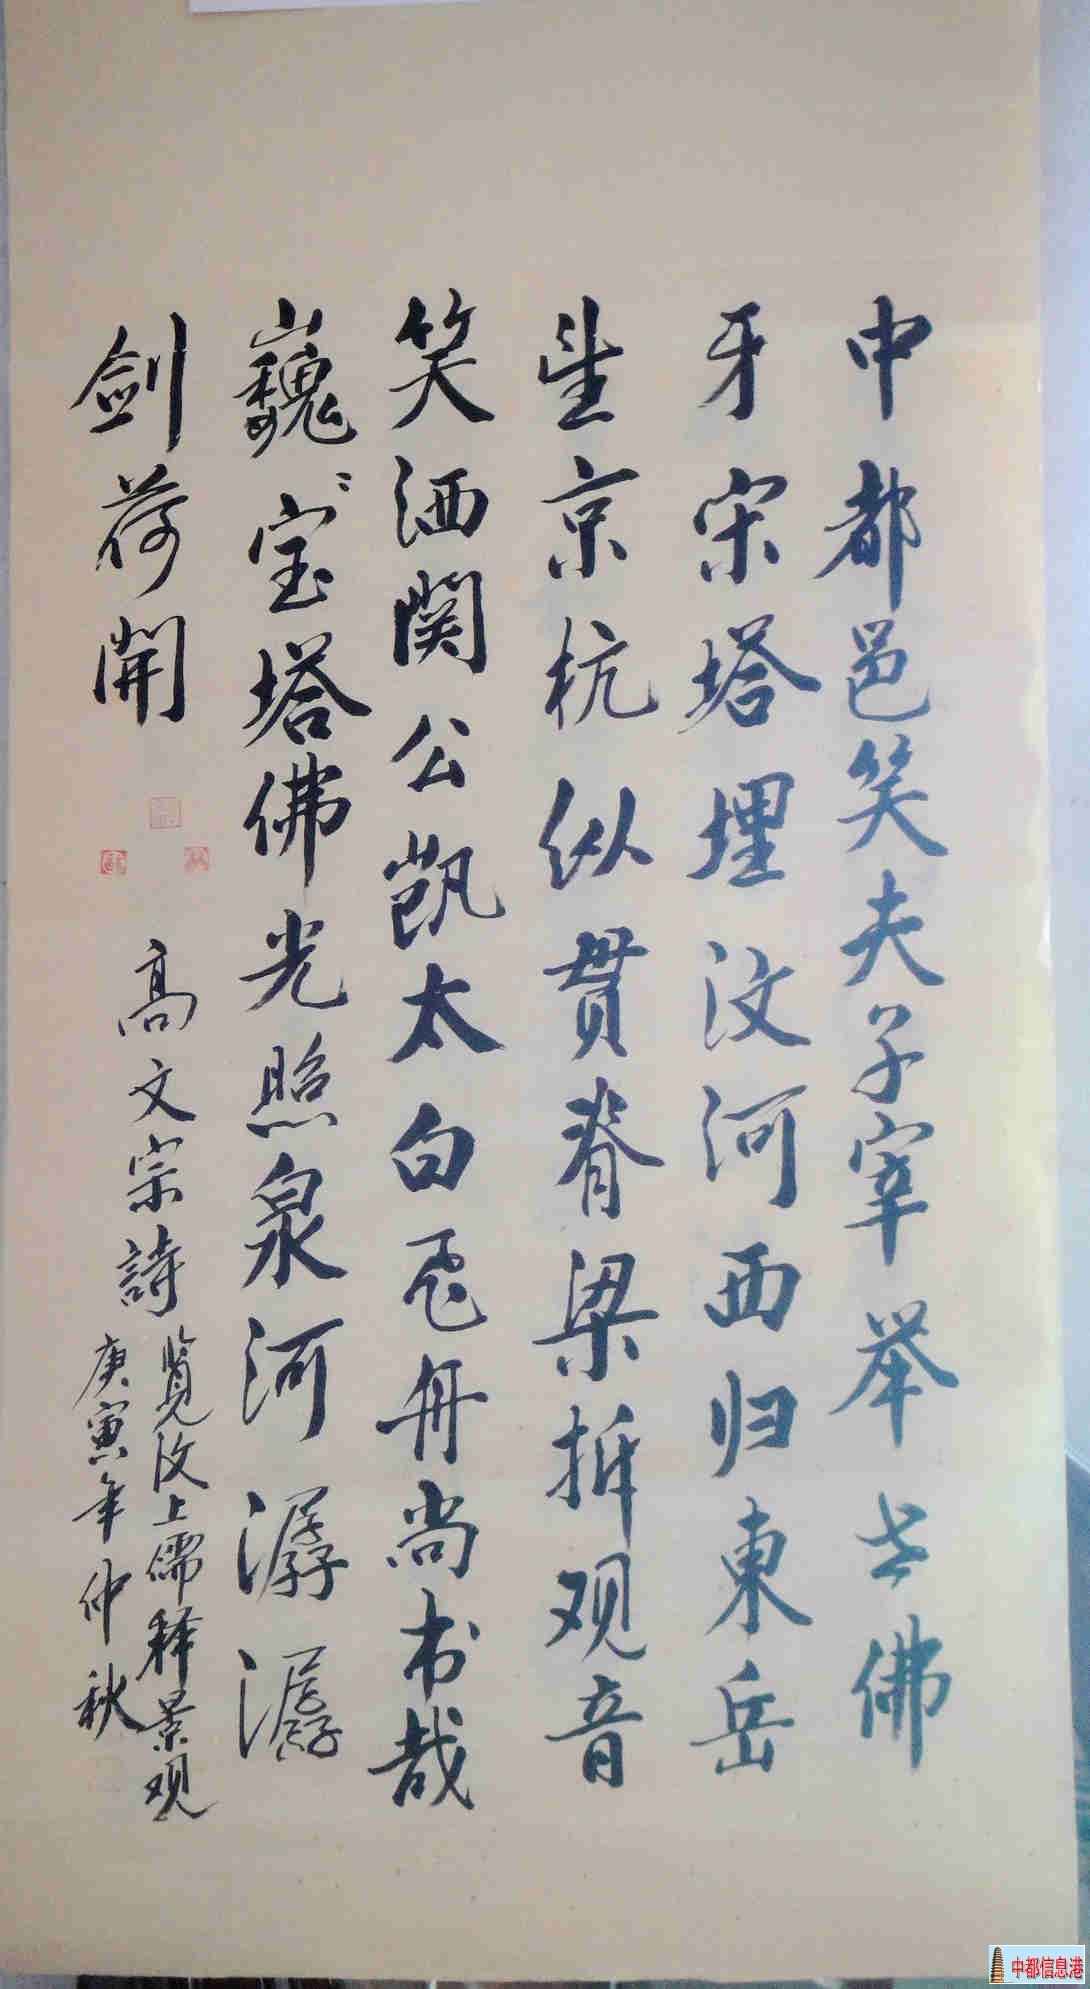 中都邑笑夫子宰举世佛
牙宋塔埋汶河西归東岳
坐京杭纵贯脊梁拆观音
笑洒関公凯太白飞舟尚书哉
巍〻宝塔佛光照泉河潺潺
剑荷開
高文宗詩
览汶上儒释景观
庚寅年仲秋
中都信息港